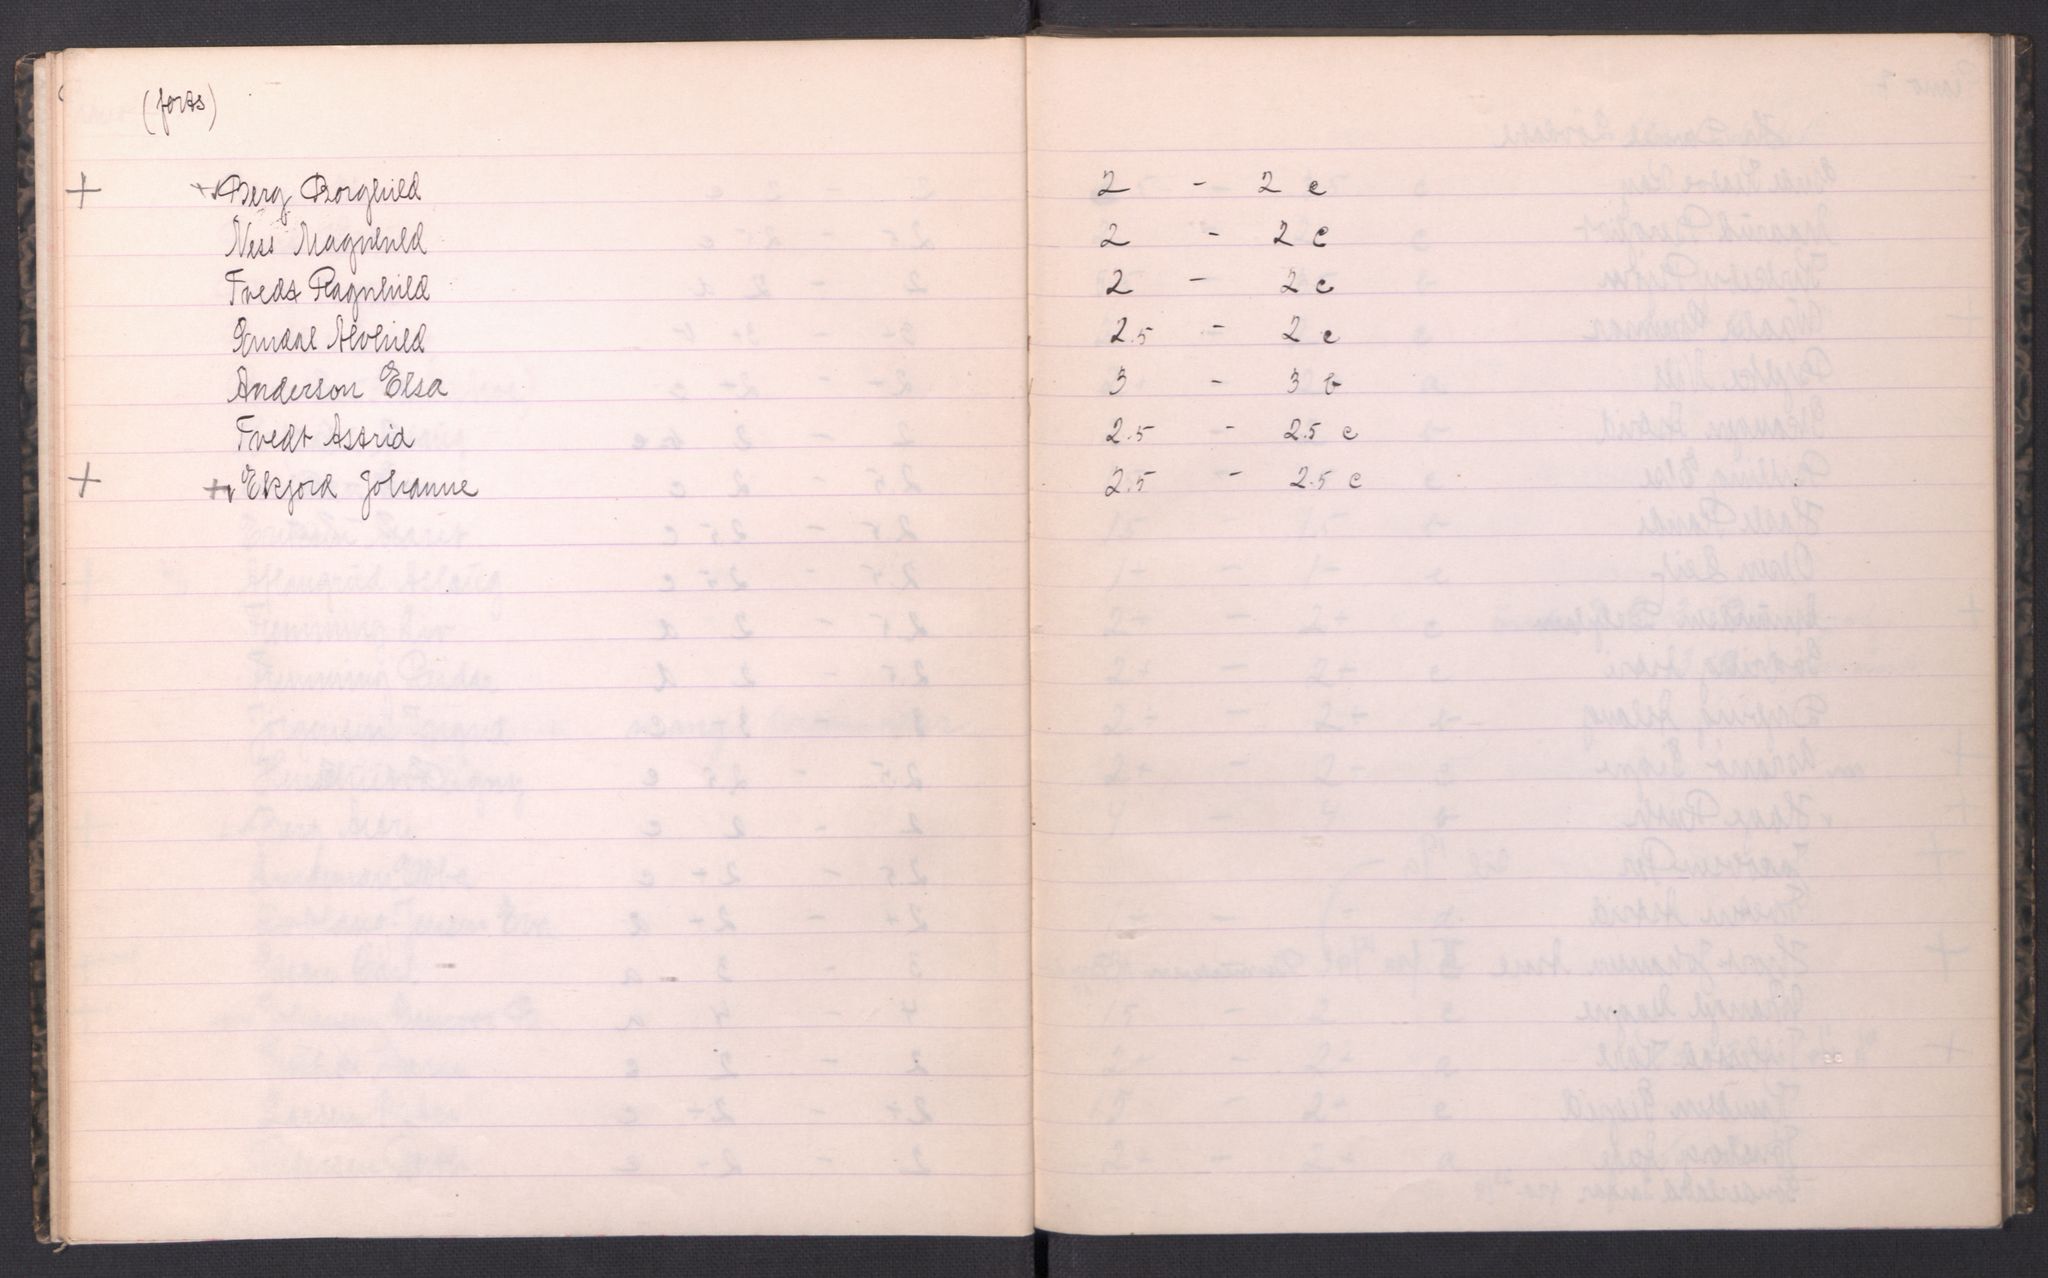 (forts)
+ + Berg Borghild 2 - 2 c
Ness Magnhild 2 - 2 c
Tvedt Ragnhild 2 - 2 c
Alvhild 2.5 - 2 c
Anderson Elsa 3 - 3 b
Tvedt Astrid 2.5 - 2.5 c
+ + Ekjord Johanne 2.5 - 2.5 c